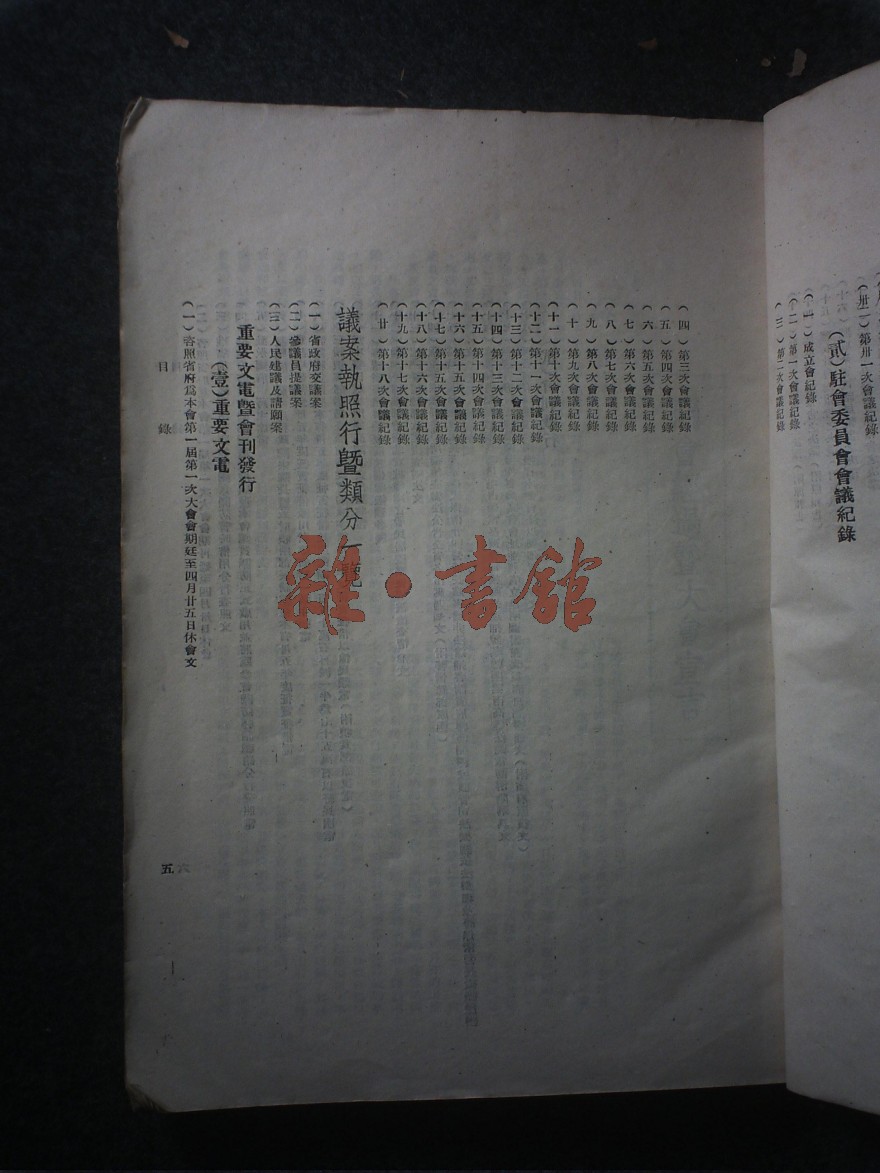 第卅一次會議紀錄
(貳)駐會委員會會議紀錄
(一)成立會紀錄
(二)第一次會議紀錄
(三)第二次會議紀錄
(四)第三次會議紀錄
(五)第四次會議紀錄
(六)第五次會議紀錄
(七)第六次會議紀錄
(八)第七次會議紀錄
(九)第八次會議紀錄
(十)第九次會議紀錄
(十一)第十次會議紀錄
(十二)第十一次會議紀錄
(十三)第十二次會議紀錄
(十四)第十三次會議紀錄
(十五)第十四次會議紀錄
(十六)第十五次會議紀錄
(十七)第十五次會議紀錄
(十八)第十六次會議紀錄
(十九)第十七次會議紀錄
(廿)第十八次會議紀錄
議案執照行暨類分一覽
(一)省政府交議案
(二)參議員提議案
(三)人民建議及請願案
重要文電暨會刊發行
(壹)重要文電
(一)咨照省府爲本會第一屆第一次大會會期延至四月廿五日休會文
目錄
五
雜·書館